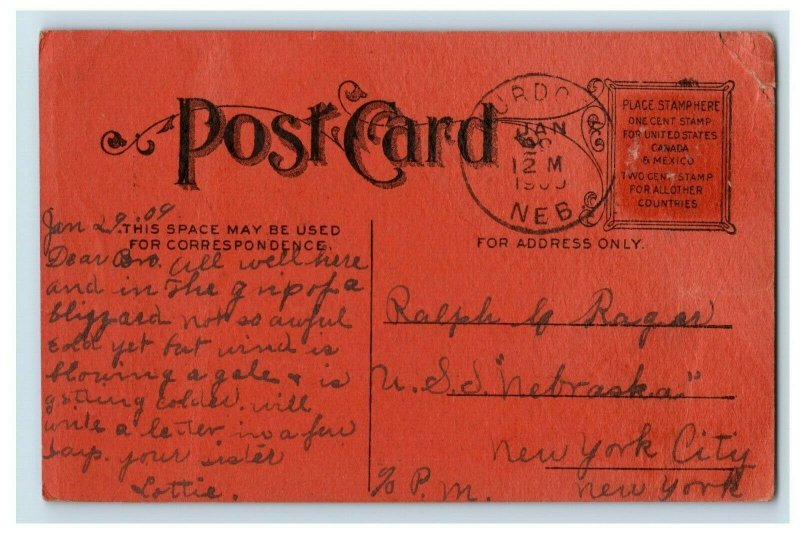 Post Card
URDO
JAN
12 M
NEB
PLACE STAMP HERE
ONE CENT STAMP
FOR UNITED STATES
CANADA
& MEXICO
TWO CENT STAMP
FOR ALL OTHER
COUNTRIES
THIS SPACE MAY BE USED
FOR CORRESPONDENCE.
FOR ADDRESS ONLY.
Jan 29. 09
Dear Bro. All well here
and in the grip of a
blizzard not so awful
cold yet but wind is
blowing a gale & is
getting colder. will
write a letter in a few
days. your sister
Lottie.
Ralph Ragar
U.S.S. "Nebraska"
New York City
New York
c/o P.M.